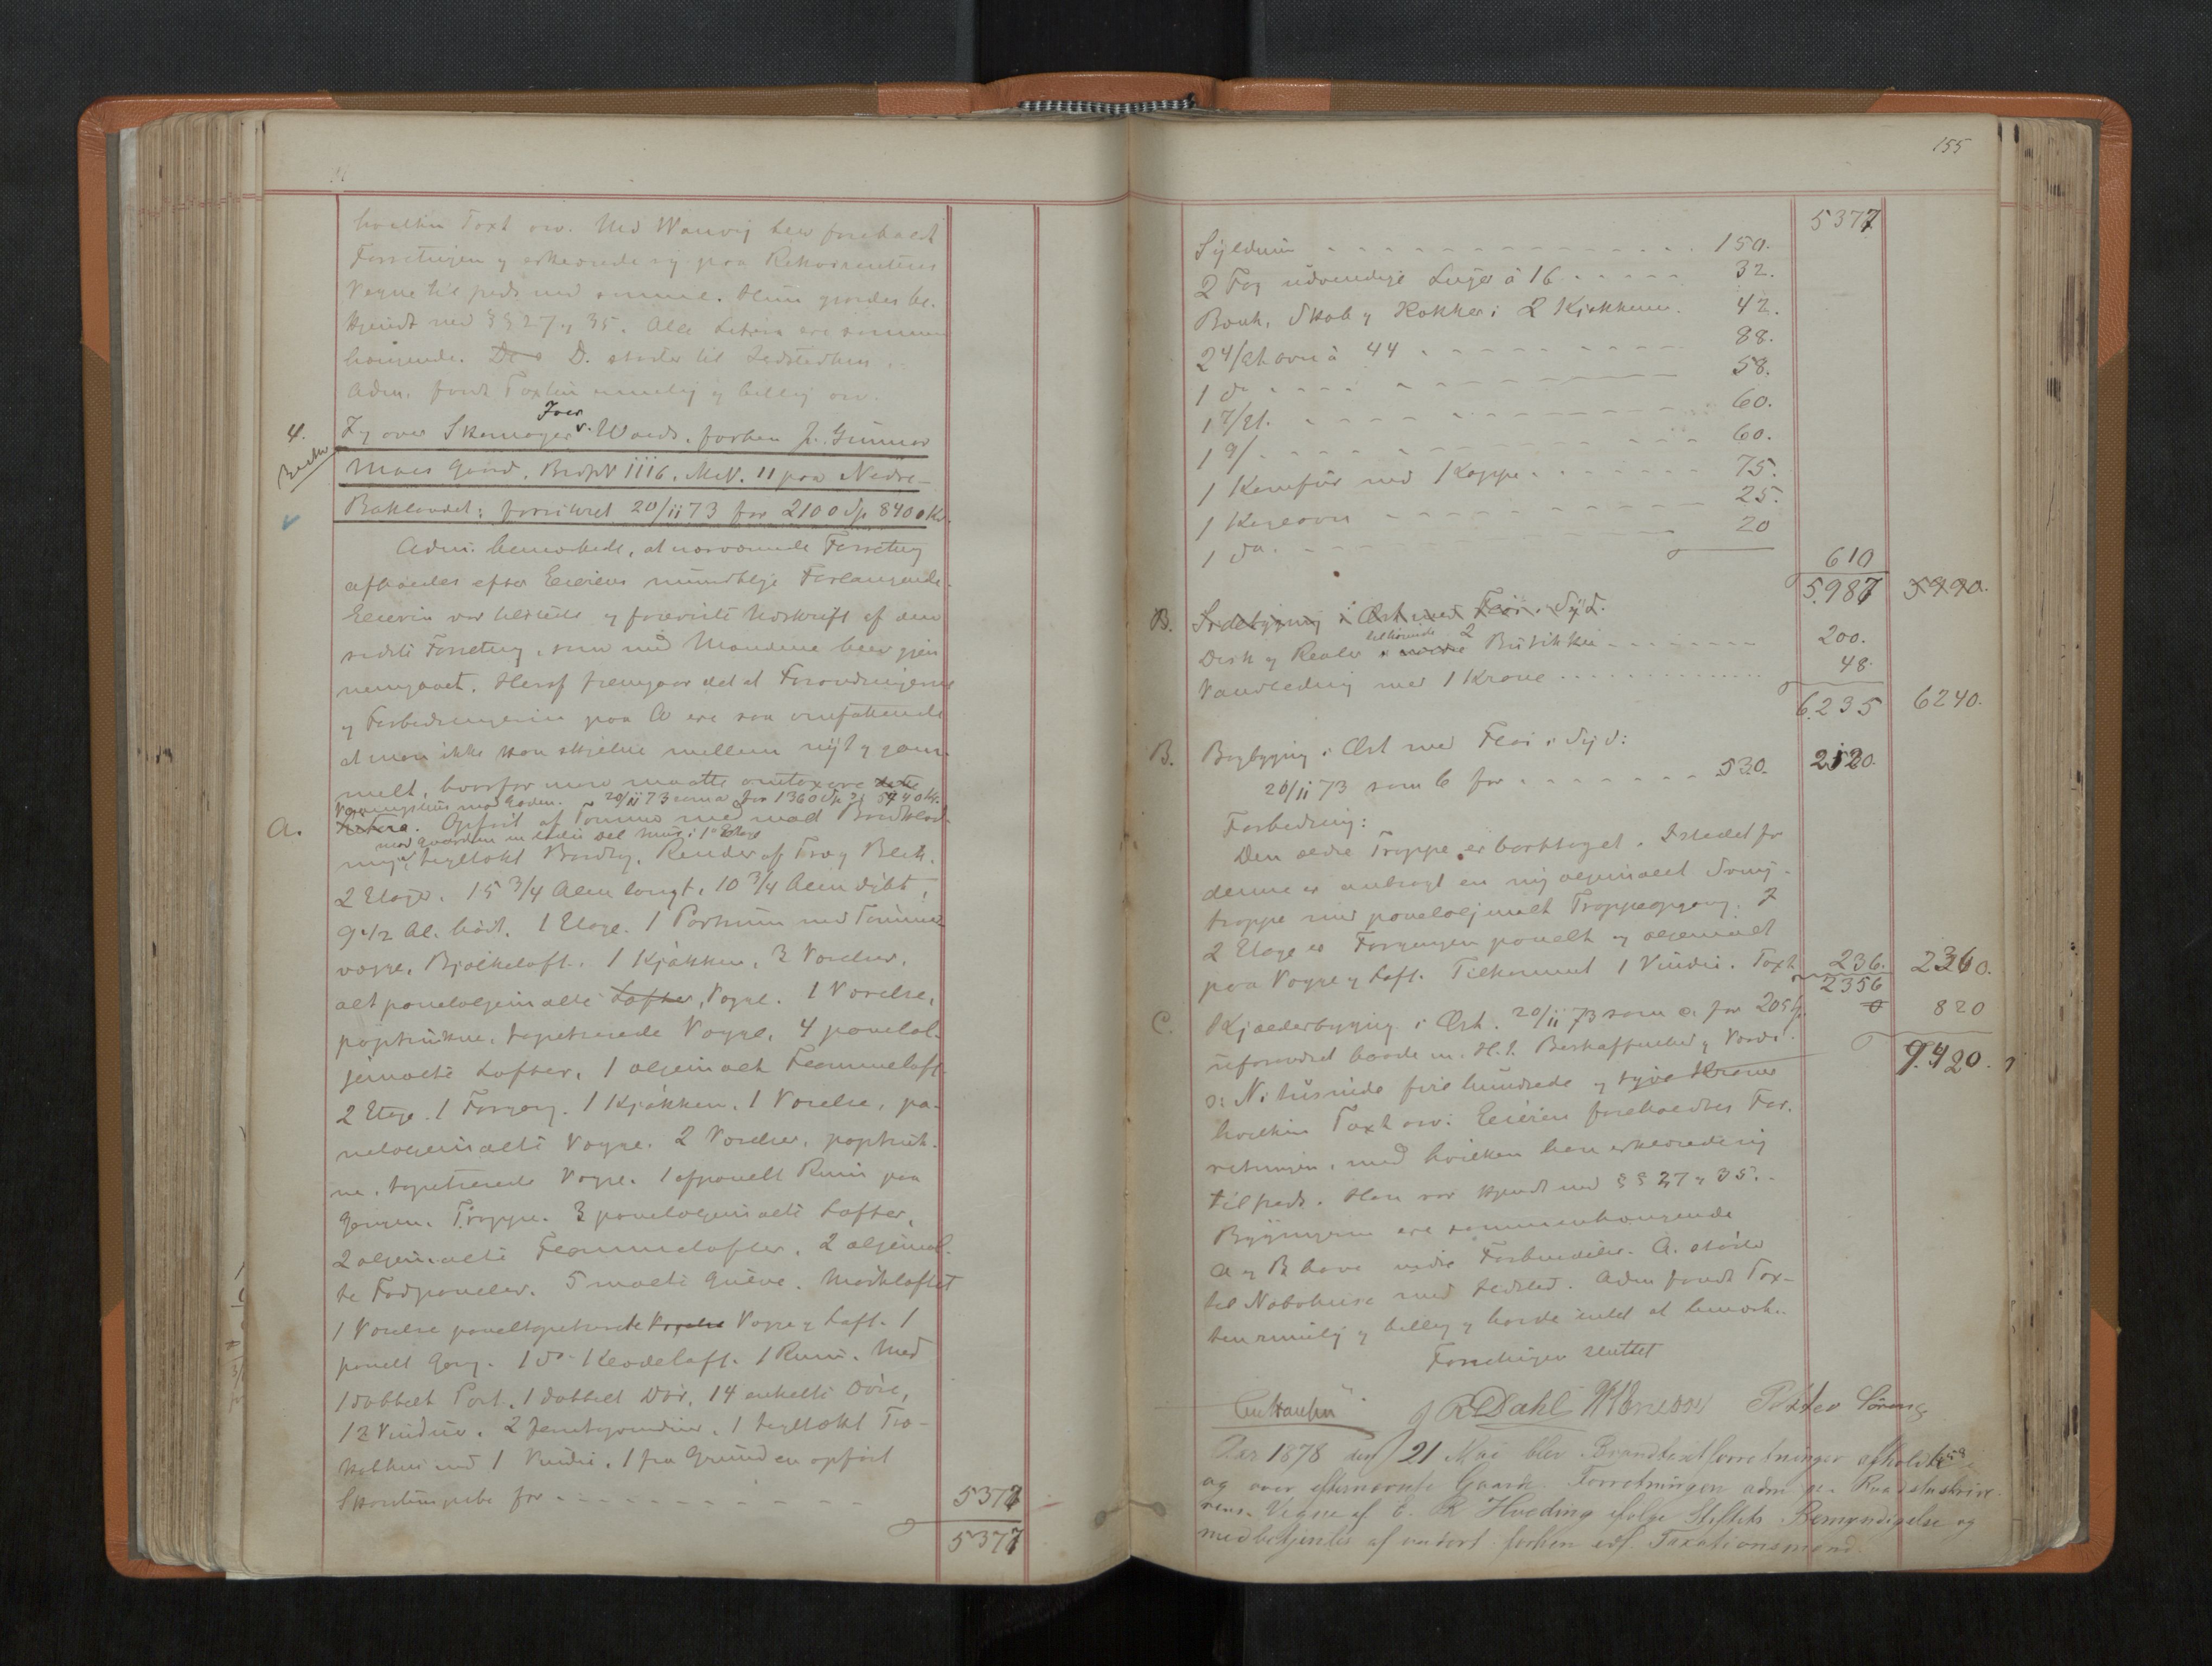 hvilken Taxt osv. Md Wanvig blev foreholdt
Forretningen og erklærede sig paa Rekvirentens
Vegne tilfreds med samme. Hun gjordes be-
kjendt med §§ 27 og 35. Alle Litera ere sammen
hængende. D. støder til Ildstedhus.
Adm. fandt Taxten rimelig og billig osv.
4.
Iver
Lig over Skomager Waads, forhen J. Gunnar
Moes Gaard, Brdp N 1116, M.N. 11 paa Nedre
Baklandet; forsikret 20/11 73 for 2100 Sp 8400 Kr.
Adm. bemærkede, at nærværende Forretning
afholdes efter Eierens mundtlige Forlangende.
Eieren var tilstede og foreviste Udskrift af den
sidste Forretning, som med Mændene blev gjen
nemgaaet. Heraf fremgaar det at Forandringerne
og Forbedringerne paa A ere saa omfattende
at man ikke kan skjelne mellem nyt og gam-
melt, hvorfor man maatte omtaxere
Vaaningshus mod Gaden. 20/11 73 som a for 1360 Sp 5440 Kr.
A. Opført af Tømmer med mod Bordklæd-
mod Gaarden en Del Mur i 1 Etage
ning, tegltækt Bordtag, Render af Træ og Blik.
2 Etager. 15 3/4 Alen langt, 10 3/4 Alen dybt,
9 1/2 Al. høit. 1 Etage. 1 Portrum med Tømmer
vægge, Bjælkeloft. 1 Kjøkken, 3 Værelser,
alt paneloljemalte Lofter, Vægge. 1 Værelse,
paptrukne, tapetserede Vægge, 4 panelol-
jemalte Lofter, 1 oljemalt Flammeloft
2 Etage. 1 Forgang. 1 Kjøkken, 1 Værelse, pa-
neloljemalte Vægge. 2 Værelser, paptruk-
ne, tapetserede Vægge. 1 afpanelt Rum paa
Gangen. Trappe. 3 paneloljemalte Lofter,
2 oljemalte Flammelofter. 2 oljemal-
te Fodpaneler. 5 malte Gulve. Mørkloftet
1 Værelse paneltapetserede Vægge og Loft. 1
panelt Gang. 1 do. Klædeloft. 1 Rum. Med
1 dobbelt Port, 1 dobbelt Dør, 14 enkelte Døre,
13 Vinduer. 2 Jerntagvinduer, 1 tegltækt Tra-
kkhus med 1 Vindue. 1 fra Grunden opført
Skorstenspibe for - - - 5377
5377
155
5377
Syldmur - - - 150.
2 Fag udvendige Luger à 16 - - - 32.
Bænk, Skab og Rækker i 2 Kjøkkener. 42.
2 4/Et. ovne à 44 - - - 88.
1 do - - - 58.
1 7/Et. - - - 60.
1 9/ - - - 60.
1 Komfur med 1 Kappe - - - 75.
1 Kogeovn - - - 25.
1 do. - - - 20
610
5.987 5990.
B. Sidebygning i Øst med Fløi i Syd.
tilhørende 2
Disk og Realer Butikken - - - 200.
Vandledning med 1 Krane - - - 48.
6.235 6240.
B. Bagbygning i Øst med Fløi i Syd:
20/11 73 som b for - - - 530. 2120.
Forbedring:
Den ældre Trappe er borttaget. Istedet for
denne er anbragt en ny oljemalet Sving-
trappe med paneloljemalt Trappeopgang. I
2 Etage er Forgangen panelt og oljemalt
paa Vægge og Loft. Tilkommet 1 Vindue. Taxt 236. 2360.
2356
C. Kjælderbygning i Øst. 20/11 73 som c. for 205 Sp. 0 820
uforandret baade m. H. t. Beskaffenhed og Værdi.
9.420.
o: Ni tusinde fire hundrede og tyve Kroner
hvilken Taxt osv: Eieren foreholdtes For-
retningen, med hvilken han erklærede sig
tilfreds. Han var kjendt med §§ 27 og 35.
Bygningerne ere sammenhængende
A og B have indre Forbindelse. A. støder
til Nabohuse med Ildsted. Adm fandt Tax-
ten rimelig og billig og havde intet at bemærke.
Forretningen sluttet
R Dahl Petter Søreng
Aar 1878 den 21 Mai blev Brandtaxtforretninger afholdte
og over efternævnte Gaarde. Forretningen adm. p. Raadstuskrive-
rens Vegne af E. R Hveding ifølge Stiftets Bemyndigelse og
medbetjentes af undert. forhen edf. Taxationsmænd.